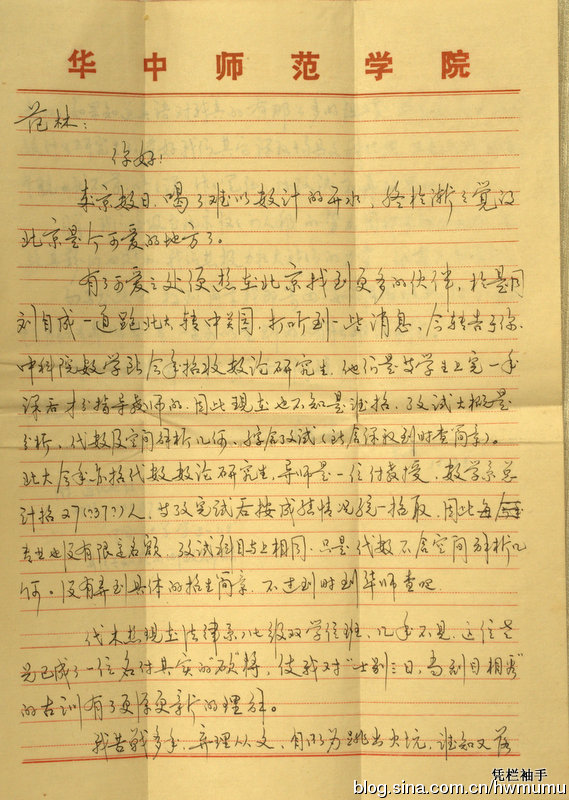 华中师范学院
范林:
你好!
来京数日,喝了难以数计的开水,终于渐渐觉得
北京是个可爱的地方了。
有了可爱之处便想在北京找到更多的伙伴,于是同
刘自成一通跑北大、转中关园,打听到一些消息,今转告于你
中科院数学所今年招收数论研究生,他们是等学生上完一年
课后才分指导教师的,因此现在也不知是谁招,考试大概是
分析、代数及空间解析几何、综合考试
北大今年亦招代数数论研究生,导师是一位付教授,数学系总
计招27(37?)人,等考完试后按成绩情况统一招取,因此每
专业也没有限定名额,考试科目与上相同,只是代数不含空间解析几
何。没有弄到具体的招生简章,不过到时到华师查吧
现在法律系八七级双学位班,几年不见,这位老
兄已成了一位名付其实的"硕"将,使我对"士别三日,当刮目相看"
的古训有了更深更新的理解。
我苦战多年,弃理从文,自以为跳出火坑,谁知又落
凭栏袖手
blog.sina.com.cn/hwmumu